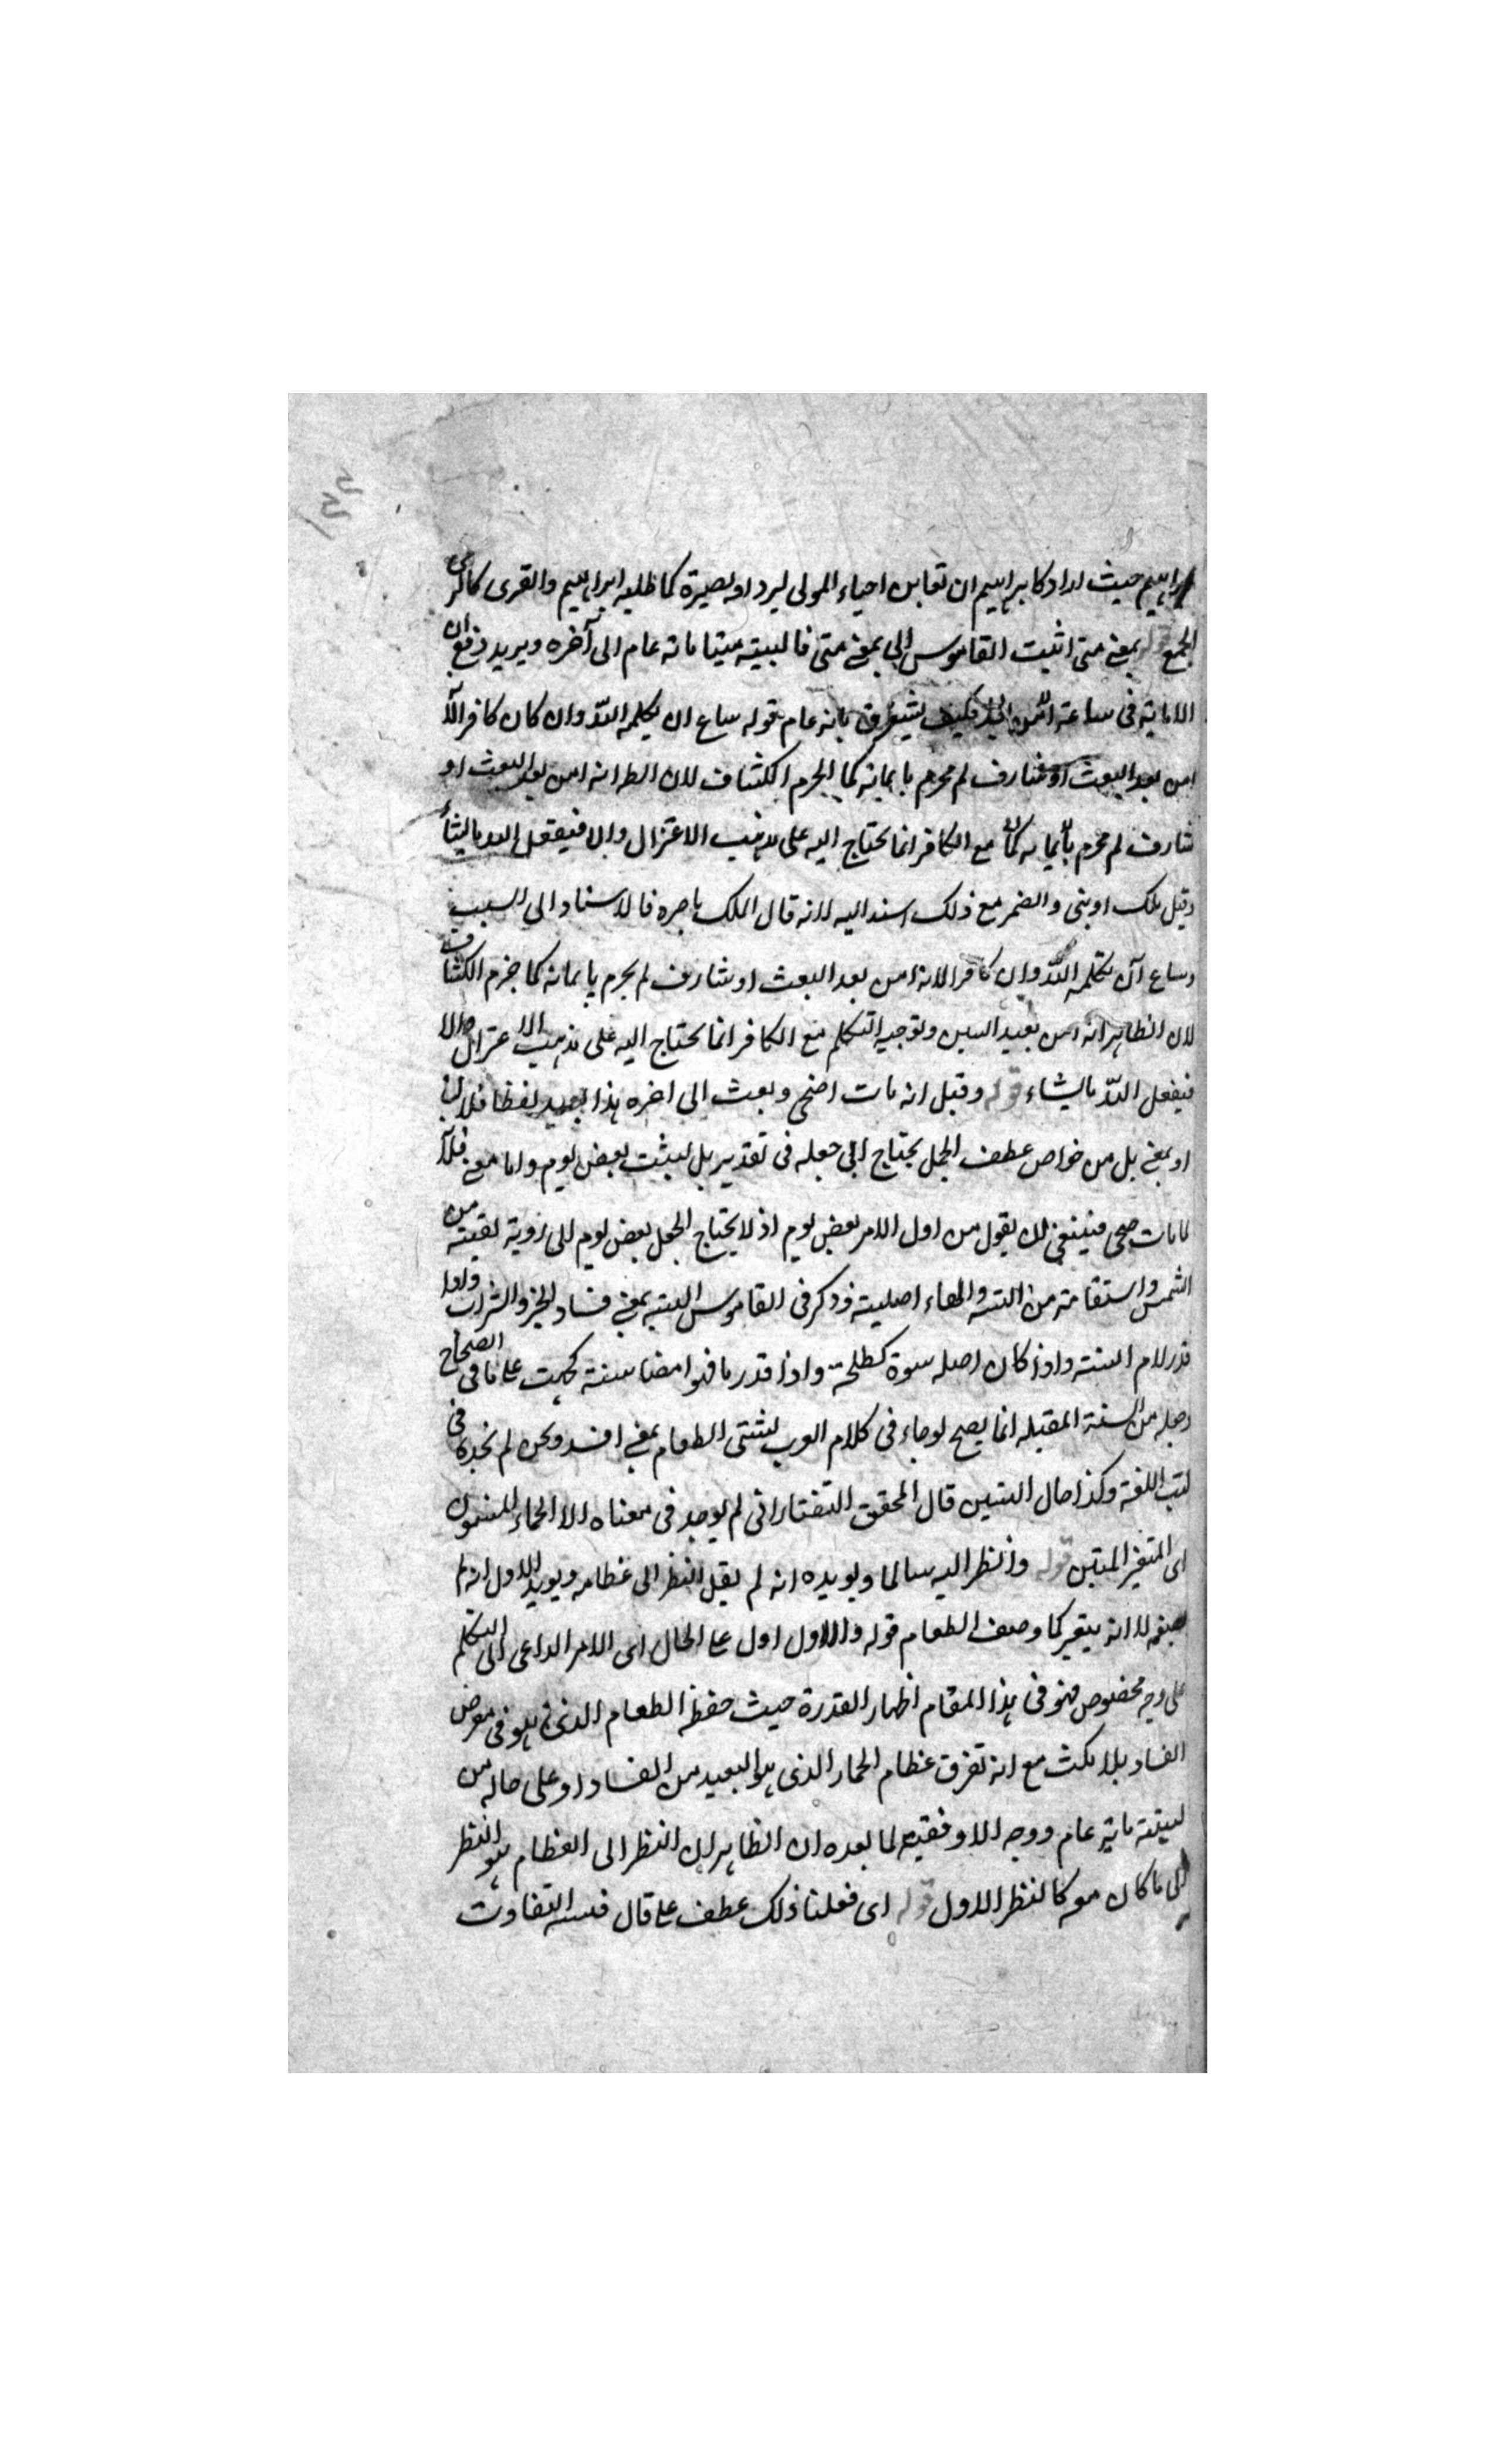 ابراهيم حيث اراد كابراهيم ان تعاين احياء الموتى ليزداد بصيرة كما طلبه ابراهيم والقرى كالرمى
الجمع قوله بمعنى متى اثبت القاموس انى بمعنى متى فالبثه ميتا مائة عام الى آخره ويريد دفع ان
الاماتة فى ساعة بانه عام قوله ساع ان يكلمه الله وان كان كافرا لانه
امن بعد البعث او شارف لم يجزم بايمانه كما الجزم الكشاف لان الظ انه امن بعد البعث او
شارف لم يجزم بايمانه مع الكافر انما يحتاج اليه على مذهب الاعتزال والا فيفعل الله ما يشاء
وقيل ملك او نبى والضمير مع ذلك اسند اليه لانه قال الملك بامره فالاسناد الى السبب
وساع ان يكلمه الله وان كافرا لانه امن بعد البعث او شارف لم يجزم بايمانه كما جزم الكشاف
لان الظاهر انه امن بعيد التبين وتوجيه التكلم مع الكافر انما يحتاج اليه على مذهب الاعتزال والا
فيفعل الله ما يشاء قوله وقيل انه مات ضحى وبعث الى اخره هذا بعيد لفظا فلان
او بمعنى بل من خواص عطف الجمل يحتاج الى جعله فى تقدير بل لبثت بعض يوم واما معنى فلانه
لما مات ضحى فينبغى ان يقول من اول الامر بعض يوم اذ لا يحتاج الجعل بعض يوم الى رؤية بقية من
الشمس واستقامة من السنة والهاء اصلية وذكر فى القاموس السنة بمعنى فساد الخبز والشراب واذا
قدر لام السنة واوا كان اصله سنوة كطلحة واذا قدر هاء فهو امضا سنهة كجبهة على ما فى الصحاح
وجعله من السنة المقبله انما يصح لو جاء فى كلام العرب تسنى الطعام بمعنى افسد ونحن لم نجده فى
كتب اللغة وكذا حال التبين قال المحقق التفتازانى لم يوجد فى معناه الا الحماء المسنون
اى المتغير المنتن قوله وانظر اليه سالما ويؤيده انه لم يقل انظر الى عظامه ويؤيد الاول انه لم
يصفه لا انه يتغير كما وصف الطعام قوله والاول اول على الحال اى الامر الداعى الى التكلم
على وجه مخصوص فهو فى هذا المقام اظهار القدرة حيث حفظ الطعام الذى هو فى معرض
الفساد بلا مكث مع انه تفرق عظام الحمار الذى هو البعيد من الفساد او على حاله من
لبثته مائة عام ووجه الاوفقية لما بعده ان الظاهر ان النظر الى العظام هو النظر
الى ما كان هو كالنظر الاول قوله اى فعلنا ذلك عطف على قال فسبه التفاوت